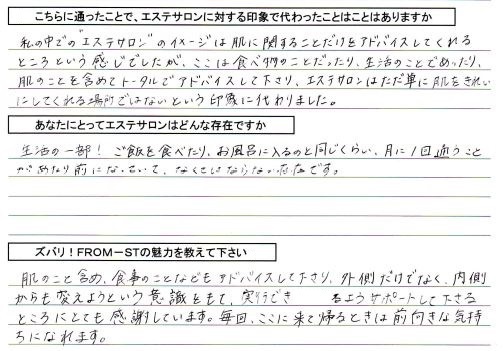 こちらに通ったことで、エステサロンに対する印象で代わったことはことはありますか
私の中での"エステサロン"のイメージは肌に関することだけをアドバイスしてくれる
ところという感じでしたが、ここは食べ物のことだったり、生活のことであったり、
肌のことを含めてトータルでアドバイスして下さり、エステサロンはただ単に肌をきれい
にしてくれる場所ではないという印象に代わりました。
あなたにとってエステサロンはどんな存在ですか
生活の一部! ご飯を食べたり、お風呂に入るのと同じくらい、月に1回通うこと
があたり前になっていて、なくてはならない存在です。
ズバリ!FROM-STの魅力を教えて下さい
肌のこと含め、食事のことなどもアドバイスして下さり、外側だけでなく、内側
からも変えようという意識をもて、実行でき るようサポートして下さる
ところにとても感謝しています。毎回、ここに来て帰るときは前向きな気持
ちになれます。